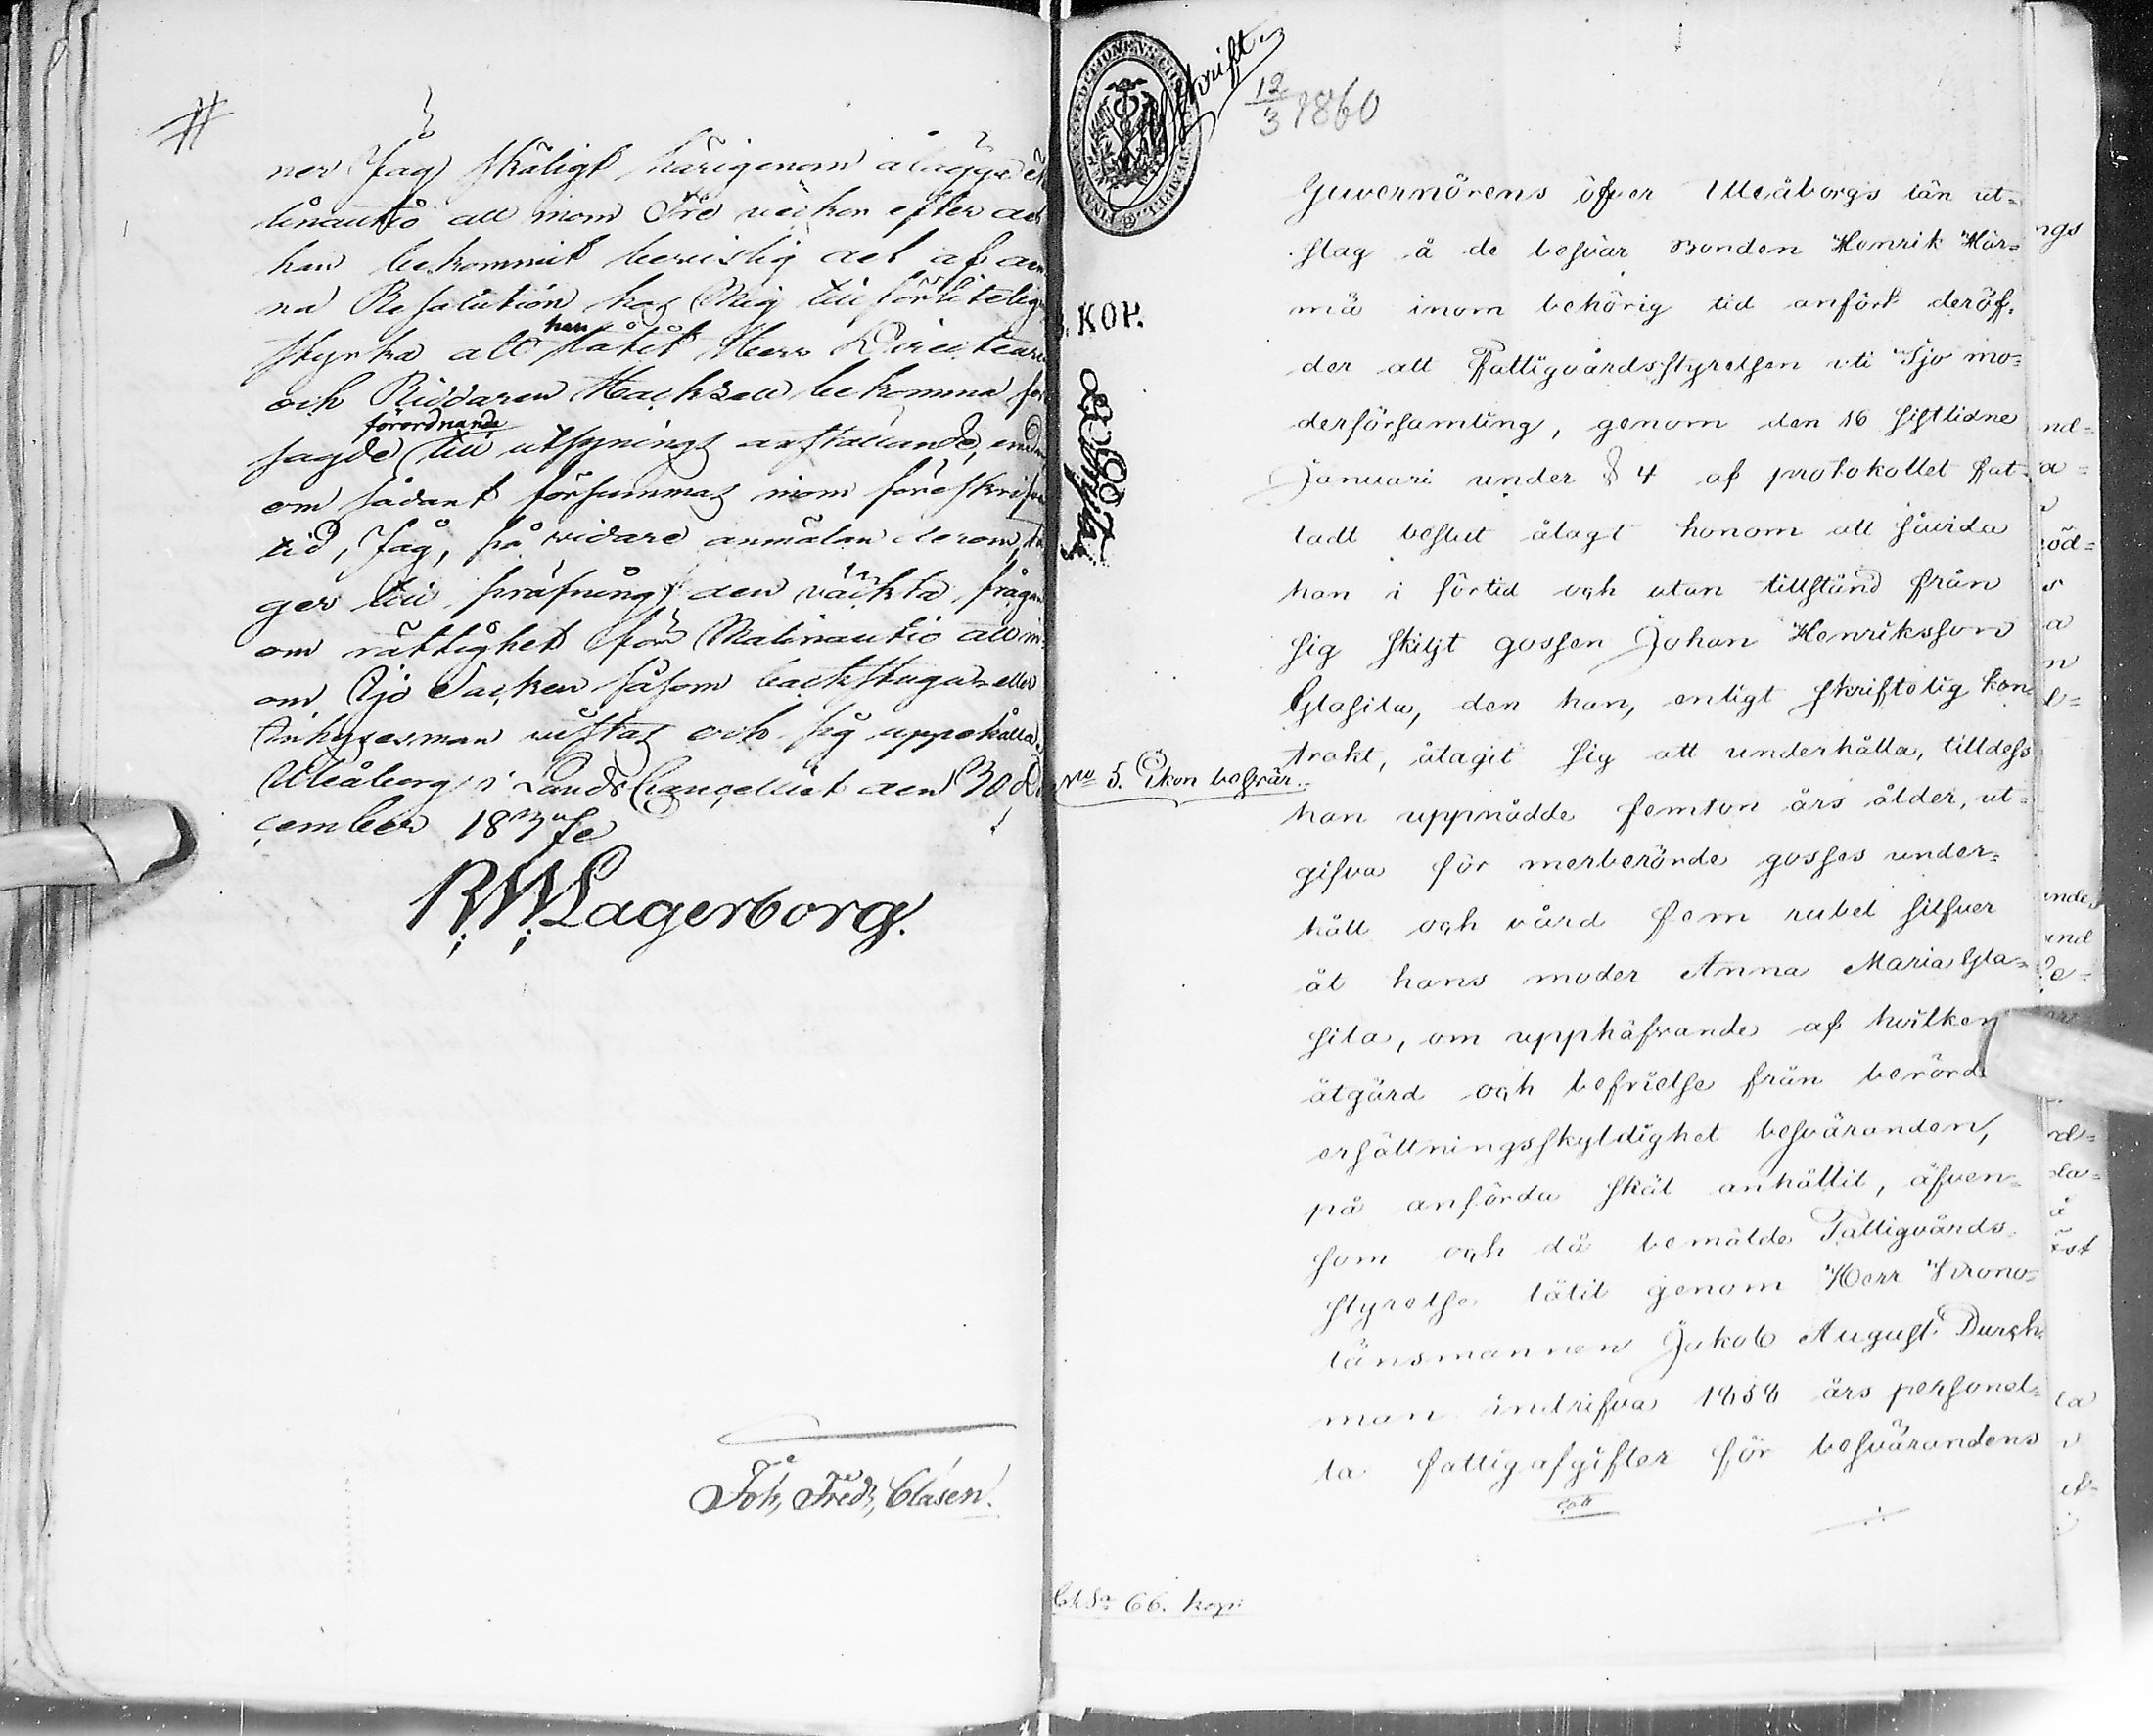 ner Jag skäligt härigenom ålägga
linautio att inom Tre veckor efter det
han bekommit bevislig del af den
na Resolution hos Mig tillförlitelig
styrka att han låtit Herr Directeuren
och Riddaren Hacksell bekomma
sagde förordnande till utsynings anställande, 
om sådant försummas inom föreskrifven
tid, Jag, på vidare anmälan derom,
ger till pröfning den väckta frågan
om rättighet för Matinautio att in
om Ijo Socken såsom backstugu- eller
Inhysesman vistas och sig uppehålla.
Uleåborg i Lands Cancelliet den 30 De
cember 1859
RWLagerborg.
Joh, Fredr, Clasen.
Afskrift
12/3 1860
KOP.
No 5. Ekon besvär.
Guvernörens öfver Uleåborgs län ut-
slag å de besvär Bonden Henrik Här-
mä inom behörig tid anfört deröf-
der att Fattigvårdsstyrelsen uti Ijo mo-
derförsamling, genom den 16 sistlidne
Januari under § 4 af protokollet fat-
tadt beslut ålagt honom att såvida
han i förtid och utan tillstånd från
sig skiljt gossen Johan Henriksson
Glasila, den han, enligt skriftelig kon-
trakt, åtagit sig att underhålla, tilldess
han uppnådde femton års ålder, ut-
gifva för merberörde gosses under-
håll och vård fem rubel silfver
åt hans moder Anna Maria Gla-
sila, om upphäfvande af hvilken
åtgärd och befrielse från berörd
ersättningsskyldighet besväranden,
på anförda skäl anhållit, äfven-
som och då bemälde Fattigvårds-
styrelse låtit genom Herr Krono-
länsmannen Jakob August Durch-
man indrifva 1858 års personel-
la fattigafgifter för besvärandens
66. kop: